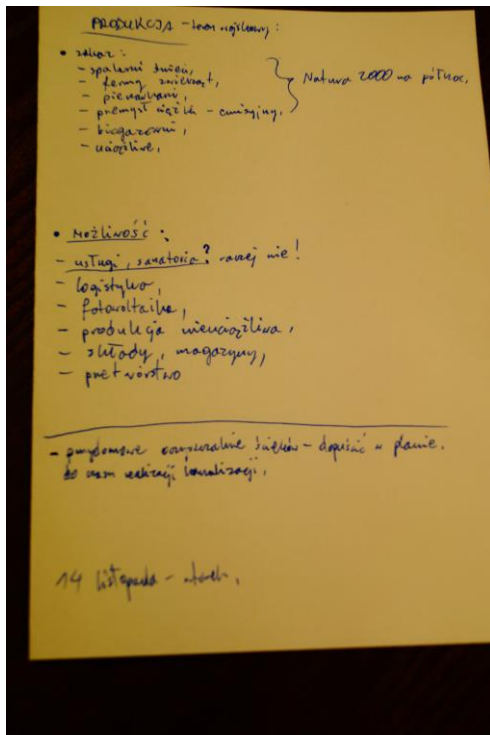 PRODUKCJA - teren wojskowy:
• zakaz:
- spalarni śmieci,
- fermy zwierząt,
- pieczarkarni,
- przemysł ciężki - emisyjny,
- biogazowni,
- uciążliwe,
Natura 2000 na północ,
• Możliwość:
- usługi, sanatoria? raczej nie!
- logistyka,
- fotowoltaika,
- produkcja nieuciążliwa,
- składy, magazyny,
- przetwórstwo
- przydomowe oczyszczalnie ścieków - dopuścić w planie.
do czasu realizacji kanalizacji,
14 listopada - wtorek,